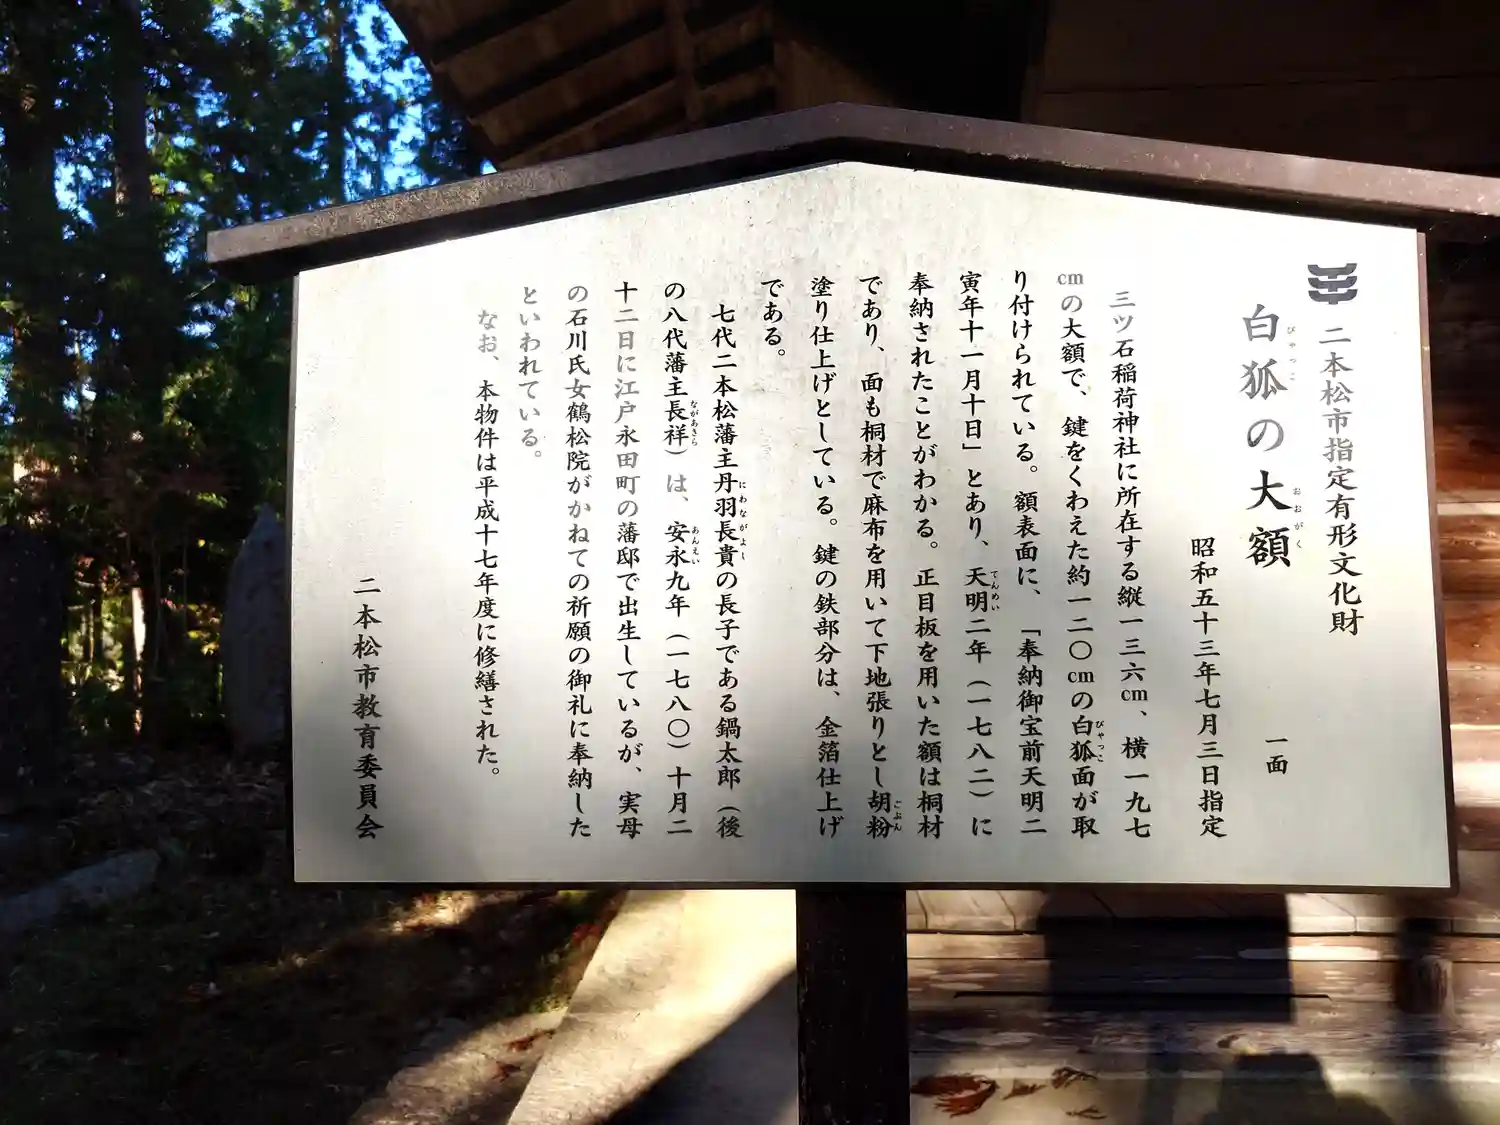 二本松市指定有形文化財
白狐の大額
びゃっこ
おおがく
一面
昭和五十三年七月三日指定
三ツ石稲荷神社に所在する縦一三六cm、横一九七
cmの大額で、鍵をくわえた約一二〇cmの白狐面が取
びゃっこ
り付けられている。額表面に、「奉納御宝前天明二
寅年十一月十日」とあり、天明二年（一七八二）に
てんめい
奉納されたことがわかる。正目板を用いた額は桐材
であり、面も桐材で麻布を用いて下地張りとし胡粉
ごふん
塗り仕上げとしている。鍵の鉄部分は、金箔仕上げ
である。
七代二本松藩主丹羽長貴の長子である鍋太郎（後
にわながよし
の八代藩主長祥）は、安永九年（一七八〇）十月二
ながあきら
あんえい
十二日に江戸永田町の藩邸で出生しているが、実母
の石川氏女鶴松院がかねての祈願の御礼に奉納した
といわれている。
なお、本物件は平成十七年度に修繕された。
二本松市教育委員会